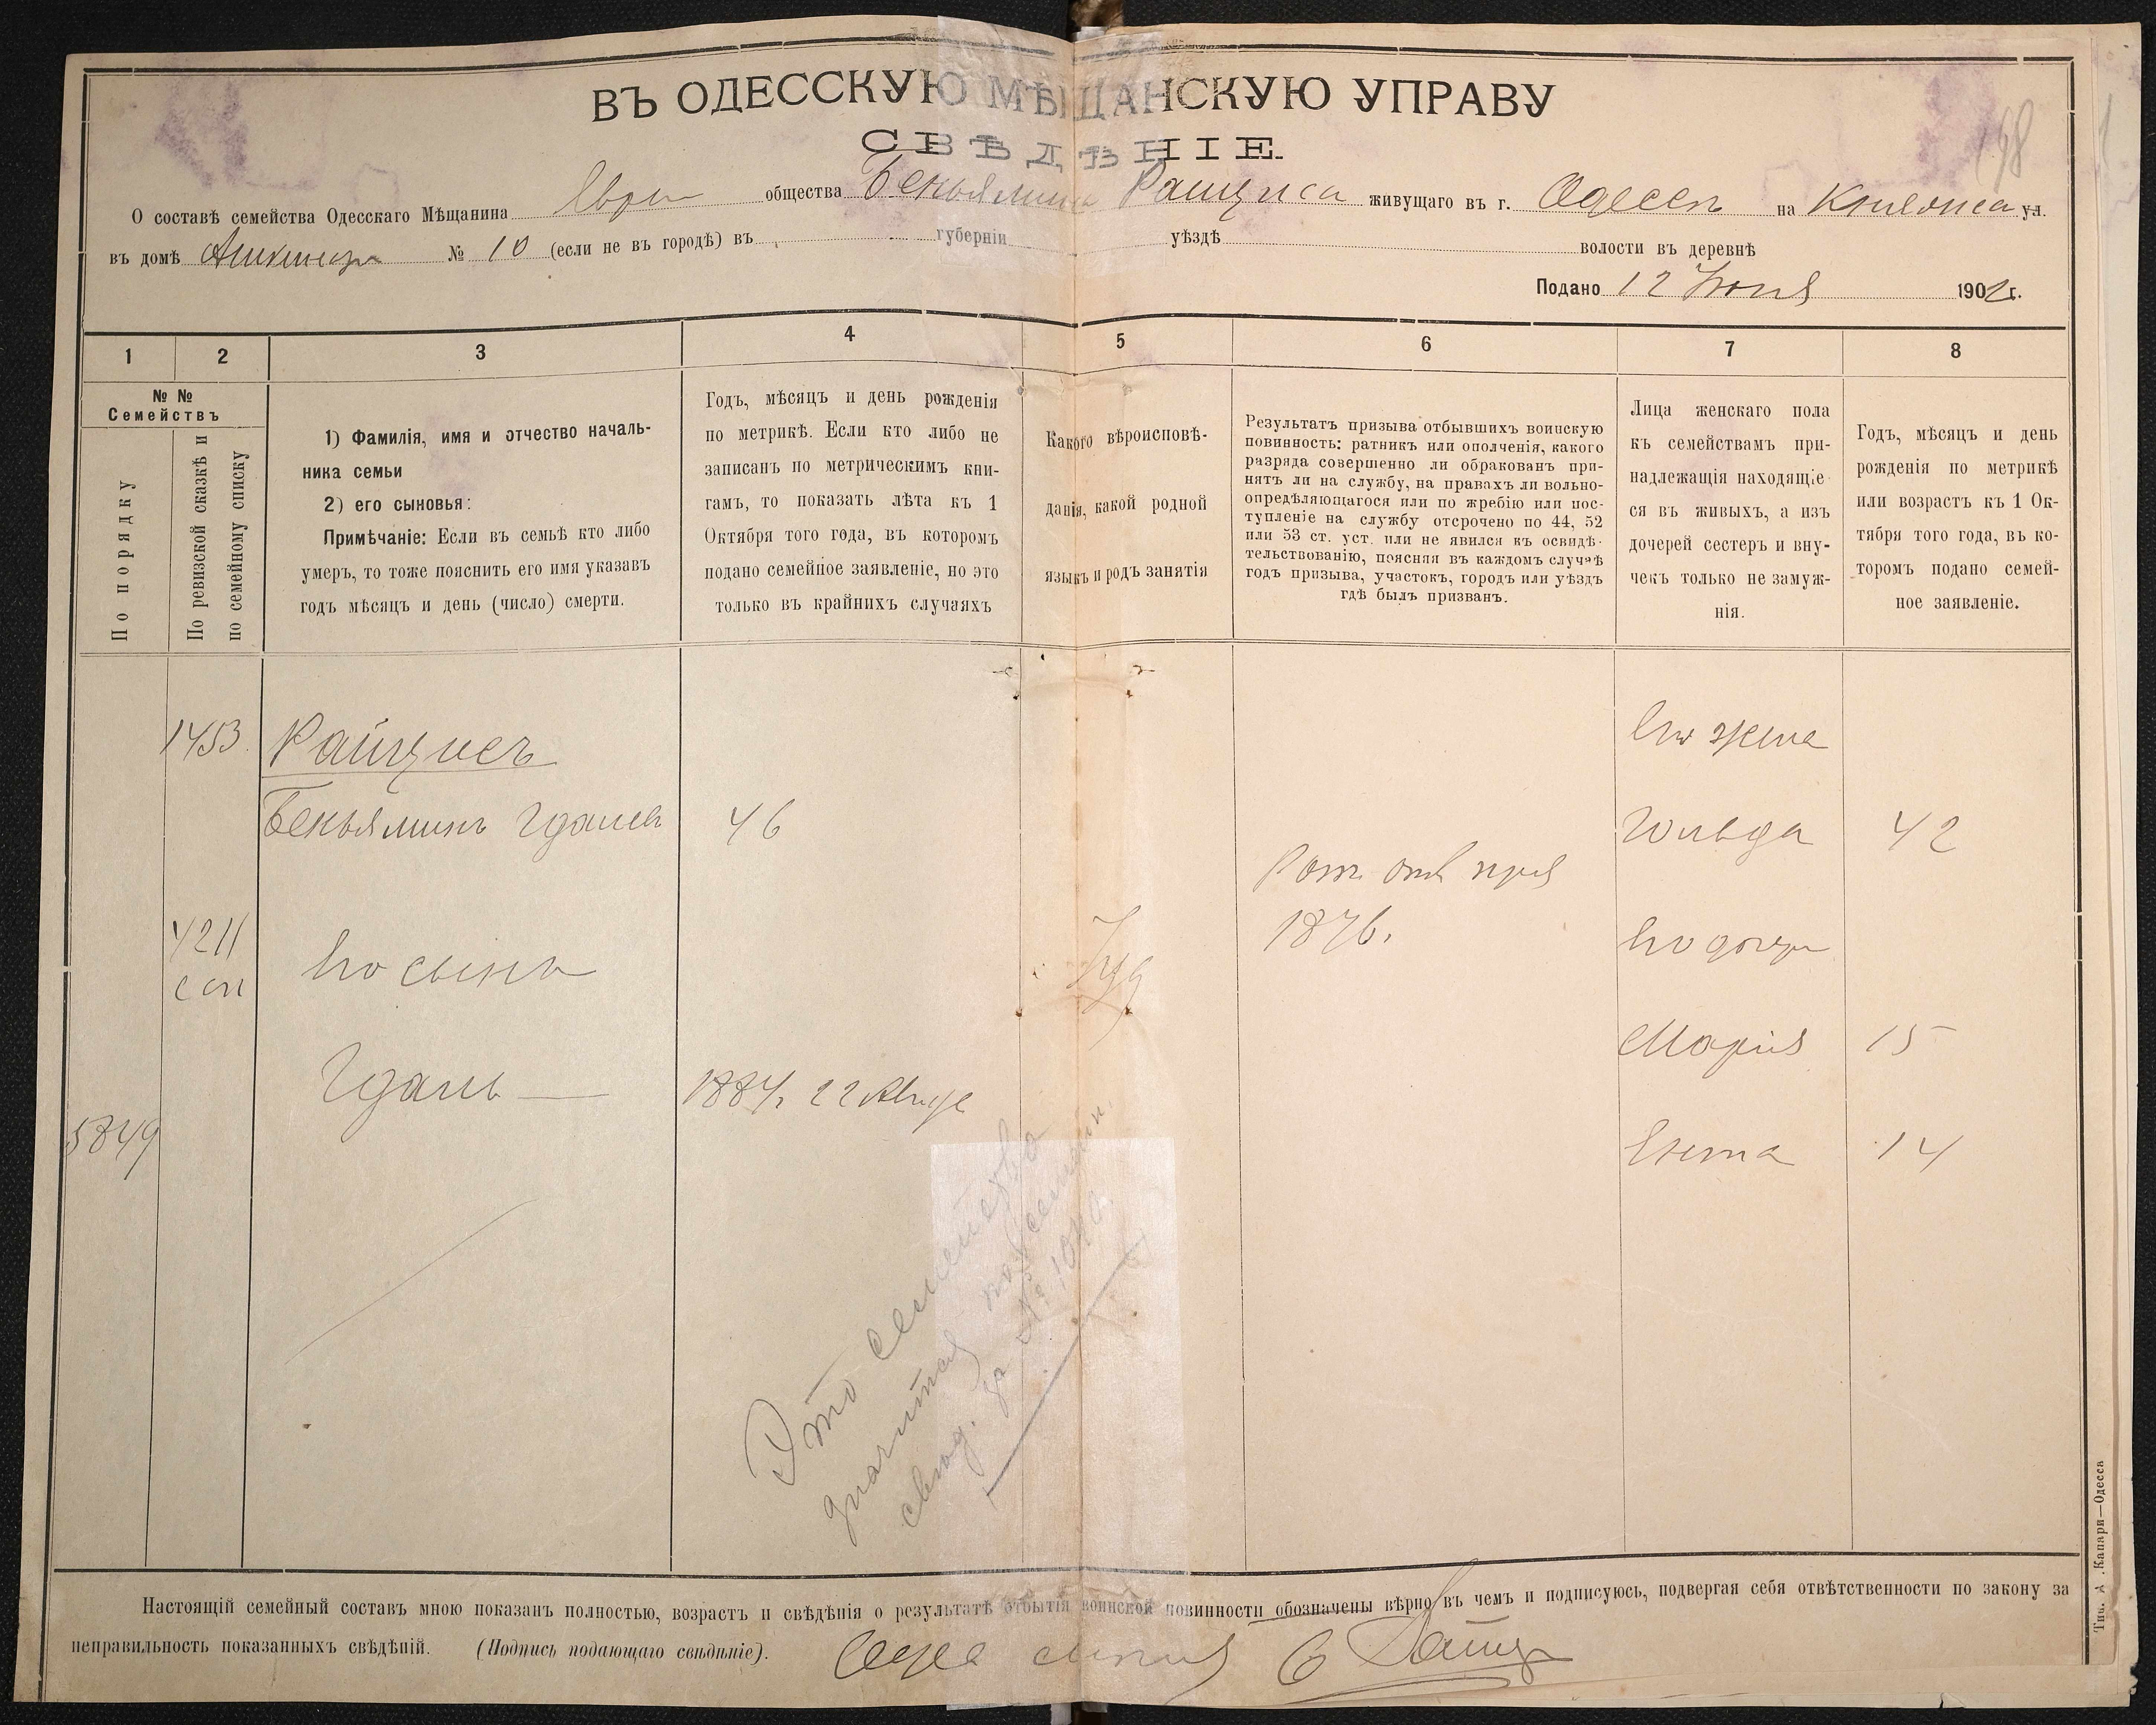 ВЪ ОДЕССКУЮ МѢЩАНСКУЮ УПРАВУ
СВѢДѢНІЕ.
198
О составѣ семейства Одесскаго Мѣщанина Евр общества Беньямина Райциса живущаго въ г. Одессѣ на ул.
въ домѣ № 10 (если не въ городѣ) въ губерніи уѣздѣ волости въ деревнѣ
Подано 12 Іюня 1902 г.
1 2 3 4 5 6 7 8
№ №
Семействъ
По порядку
По ревизской сказкѣ и
по семейному списку
1) Фамилія, имя и отчество началь-
ника семьи
2) его сыновья:
Примѣчаніе: Если въ семьѣ кто либо
умеръ, то тоже пояснить его имя указавъ
годъ мѣсяцъ и день (число) смерти.
Годъ, мѣсяцъ и день рожденія
по метрикѣ. Если кто либо не
записанъ по метрическимъ кни-
гамъ, то показать лѣта къ 1
Октября того года, въ которомъ
подано семейное заявленіе, но это
только въ крайнихъ случаяхъ
Какого вѣроисповѣ-
данія, какой родной
языкъ и родъ занятія
Результатъ призыва отбывшихъ воинскую
повинность: ратникъ или ополченія, какого
разряда совершенно ли обракованъ при-
нятъ ли на службу, на правахъ ли вольно-
опредѣляющагося или по жребію или пос-
тупленіе на службу отсрочено по 44, 52
или 53 ст. уст. или не явился къ освидѣ-
тельствованію, поясняя въ каждомъ случаѣ
годъ призыва, участокъ, городъ или уѣздъ
гдѣ былъ призванъ.
Лица женскаго пола
къ семействамъ при-
надлежащія находящіе-
ся въ живыхъ, а изъ
дочерей сестеръ и вну-
чекъ только не замуж-
нія.
Годъ, мѣсяцъ и день
рожденія по метрикѣ
или возрастъ къ 1 Ок-
тября того года, въ ко-
торомъ подано семей-
ное заявленіе.
1453 Райцисъ Его жена
Беньяминъ Гдалев 46 Гольда 42
1876.
4211 Его сынъ Іуд Его дочери
Марія 15
Гдаль — 1884 22 Авгус
5849 Енета 14
Это семейство
значится по семейн.
свид. за № 1046.
Настоящій семейный составъ мною показанъ полностью, возрастъ и свѣдѣнія о результатѣ отбытія воинской повинности обозначены вѣрно въ чемъ и подписуюсь, подвергая себя отвѣтственности по закону за
неправильность показанныхъ свѣдѣній. (Подпись подающаго свѣдѣніе).
Тип. А. Капари—Одесса